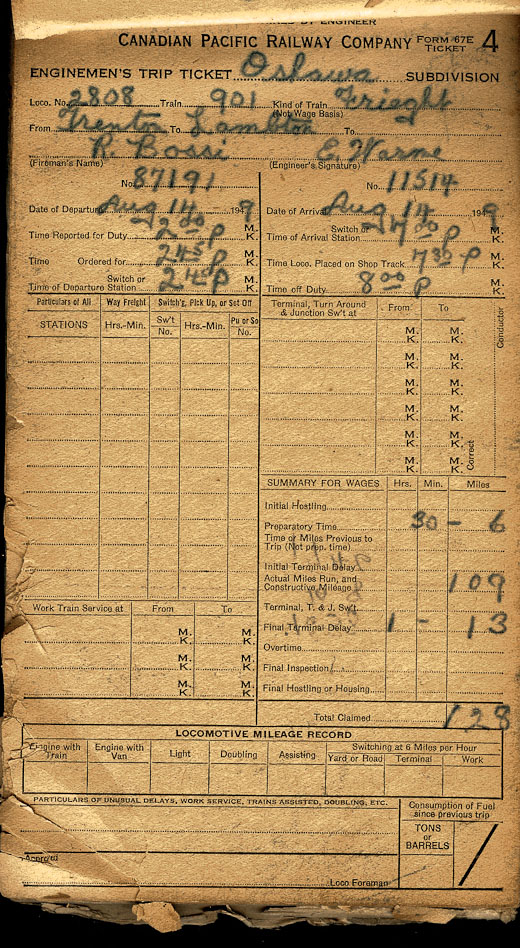 BY ENGINEER
CANADIAN PACIFIC RAILWAY COMPANY FORM 67E TICKET 4
ENGINEMEN'S TRIP TICKET Oshawa SUBDIVISION
Loco. No. 2808 Train 901 Kind of Train Frieght
(Not Wage Basis)
From Trenton To Lambton To
R. Bossi E. Warne
(Fireman's Name) (Engineer's Signature)
No. 87191 No. 11514
Date of Departure Aug 14 1949 Date of Arrival Aug 14 1949
Time Reported for Duty 2 00 P M. K. Switch or Time of Arrival Station 7 00 P M. K.
Time Ordered for 2 45 P M. K. Time Loco. Placed on Shop Track 7 30 P M. K.
Switch or Time of Departure Station 2 45 P M. K. Time off Duty 8 00 P M. K.
Particulars of All Way Freight Switch'g, Pick Up, or Set Off Terminal, Turn Around & Junction Sw't at From To Conductor
STATIONS Hrs.-Min. Sw't No. Hrs.-Min. Pu or So No.
M. K. M. K.
M. K. M. K.
M. K. M. K.
M. K. M. K.
M. K. M. K.
M. K. M. K. Correct
SUMMARY FOR WAGES Hrs. Min. Miles
Initial Hostling
Preparatory Time 30 - 6
Time or Miles Previous to Trip (Not prep. time)
Initial Terminal Delay
Actual Miles Run, and Constructive Mileage 109
Terminal, T. & J. Sw't.
Final Terminal Delay 1 - 13
Overtime
Final Inspection
Final Hostling or Housing
Work Train Service at From To
M. K. M. K.
M. K. M. K.
M. K. M. K.
Total Claimed 128
LOCOMOTIVE MILEAGE RECORD
Engine with Train Engine with Van Light Doubling Assisting Switching at 6 Miles per Hour
Yard or Road Terminal Work
PARTICULARS OF UNUSUAL DELAYS, WORK SERVICE, TRAINS ASSISTED, DOUBLING, ETC. Consumption of Fuel since previous trip
TONS or BARRELS
Approved
Loco Foreman